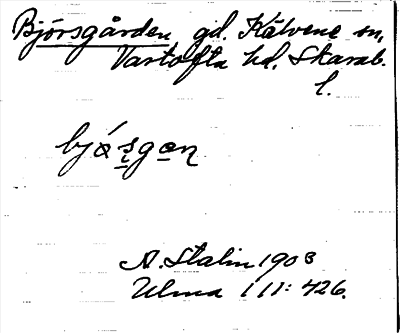 Björsgården gd. Kälvene sn,
Vartofta hd. Skarab.
l.
bjósgan
A. Stalin 1903
Ulma 111: 426.